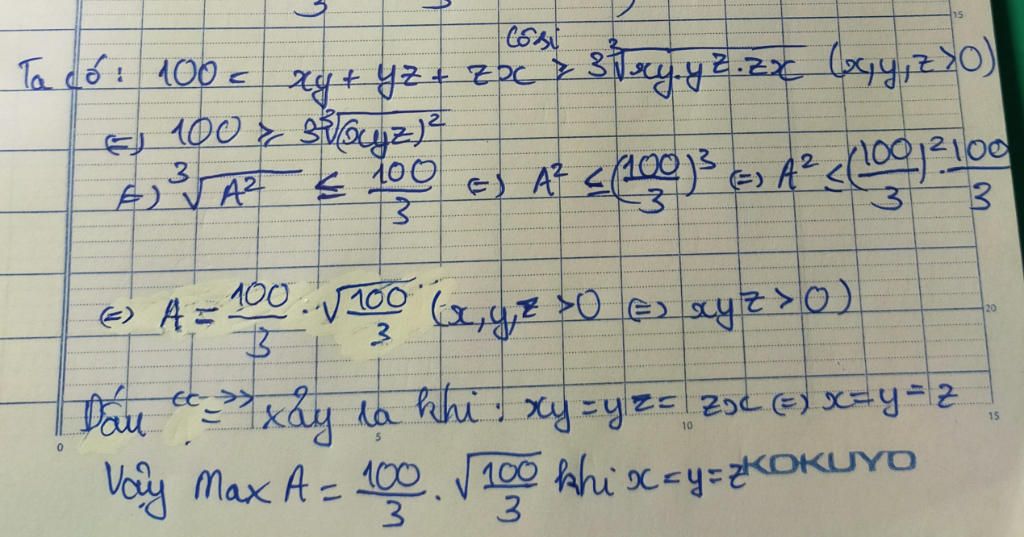 15
Côsi
Ta có: 100 = xy + yz + zx ≥ 3∛(xy.yz.zx) (x,y,z>0)
⇔ 100 ≥ 3∛(xyz)²
⇔ ∛A² ≤ 100/3 ⇔ A² ≤ (100/3)³ ⇔ A² ≤ (100/3)².100/3
⇔ A = 100/3 . √(100/3) (x,y,z >0 ⇔ xyz >0)
20
Dấu "=" xảy ra khi: xy = yz = zx ⇔ x=y=z
0 5 10 15
Vậy Max A = 100/3 . √(100/3) khi x=y=z
KOKUYO